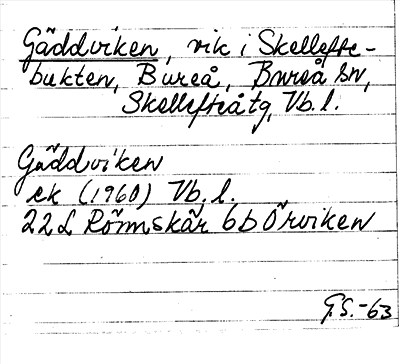 Gäddviken, vik i Skellefte-
bukten, Bureå, Bureå sn,
Skellefteå tg, Vb. l.
Gäddviken
ek (1960) Vb. l.
22L Rönnskär 6b Örviken
G.S.-63